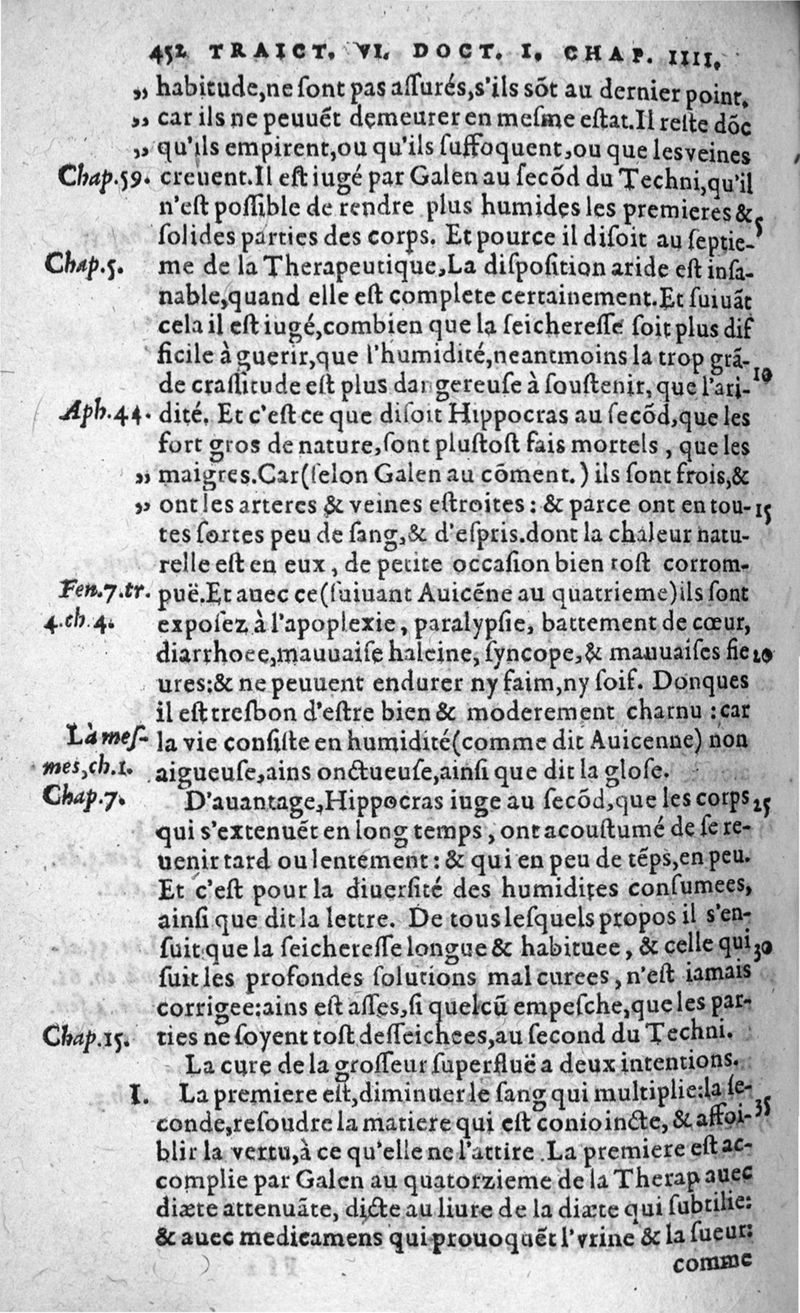 452 TRAICT. VI. DOCT. I. CHAP. IIII.
„ habitude,ne ſont pas aſſurés,s'ils sõt au dernier point,
„ car ils ne peuuẽt demeurer en meſme eſtat.Il reſte dõc
„ qu'ils empirent,ou qu'ils ſuffoquent,ou que les veines
Chap.59. creuent.Il eſt iugé par Galen au ſecõd du Techni,qu'il
n'eſt poſſible de rendre plus humides les premieres &
ſolides parties des corps. Et pource il diſoit au ſeptie- 5
Chap.5. me de la Therapeutique,La diſpoſition aride eſt inſa-
nable,quand elle eſt complete certainement.Et ſuiuãt
cela il eſt iugé,combien que la ſeichereſſe ſoit plus dif
ficile à guerir,que l'humidité,neantmoins la trop grã-
de craſſitude eſt plus dangereuſe à ſouſtenir,que l'ari- 10
Aph.44. dité. Et c'eſt ce que diſoit Hippocras au ſecõd,que les
fort gros de nature,ſont pluſtoſt fais mortels , que les
„ maigres.Car(ſelon Galen au cõment.) ils ſont frois,&
„ ont les arteres & veines eſtroites : & parce ont en tou- 15
tes ſortes peu de ſang,& d'eſpris.dont la chaleur natu-
relle eſt en eux , de petite occaſion bien toſt corrom-
Fen.7.tr. puë.Et auec ce(ſuiuant Auicẽne au quatrieme)ils ſont
4.ch.4. expoſez à l'apoplexie, paralypſie, battement de cœur,
diarrhoee,mauuaiſe haleine, ſyncope,& mauuaiſes fie 20
ures:& ne peuuent endurer ny faim,ny ſoif. Donques
il eſt treſbon d'eſtre bien & moderement charnu : car
La meſ- la vie conſiſte en humidité(comme dit Auicenne) non
mes,ch.1. aigueuſe,ains onctueuſe,ainſi que dit la gloſe.
Chap.7. D'auantage,Hippocras iuge au ſecõd,que les corps 25
qui s'extenuẽt en long temps , ont acouſtumé de ſe re-
uenir tard ou lentement : & qui en peu de tẽps,en peu.
Et c'eſt pour la diuerſité des humidites conſumees,
ainſi que dit la lettre. De tous leſquels propos il s'en-
ſuit que la ſeichereſſe longue & habituee , & celle qui 30
ſuit les profondes ſolutions mal curees , n'eſt iamais
corrigee:ains eſt aſſes,ſi quelcũ empeſche,que les par-
Chap.15. ties ne ſoyent toſt deſſeichees,au ſecond du Techni.
La cure de la groſſeur ſuperfluë a deux intentions.
I. La premiere eſt,diminuer le ſang qui multiplie:la ſe-
conde,reſoudre la matiere qui eſt conioincte, & affoi- 35
blir la vertu,à ce qu'elle ne l'attire .La premiere eſt ac-
complie par Galen au quatorzieme de la Therap auec
diæte attenuãte, dicte au liure de la diæte qui ſubtilie:
& auec medicamens qui prouoquẽt l'vrine & la ſueur:
comme